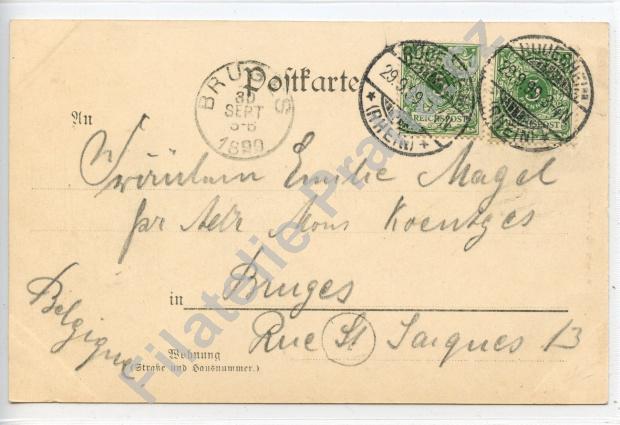 Postkarte
An
BRUGES
30
SEPT
5-6
1899
REICHSPOST
REICHSPOST
(RHEIN)
(RHEIN)
29.9.
Fräulein Emilie Magel
pr Adr Mons Koentges
in Bruges
Belgique
Rue St Jaques 13
Wohnung
(Straße und Hausnummer.)
Filatelie Pra